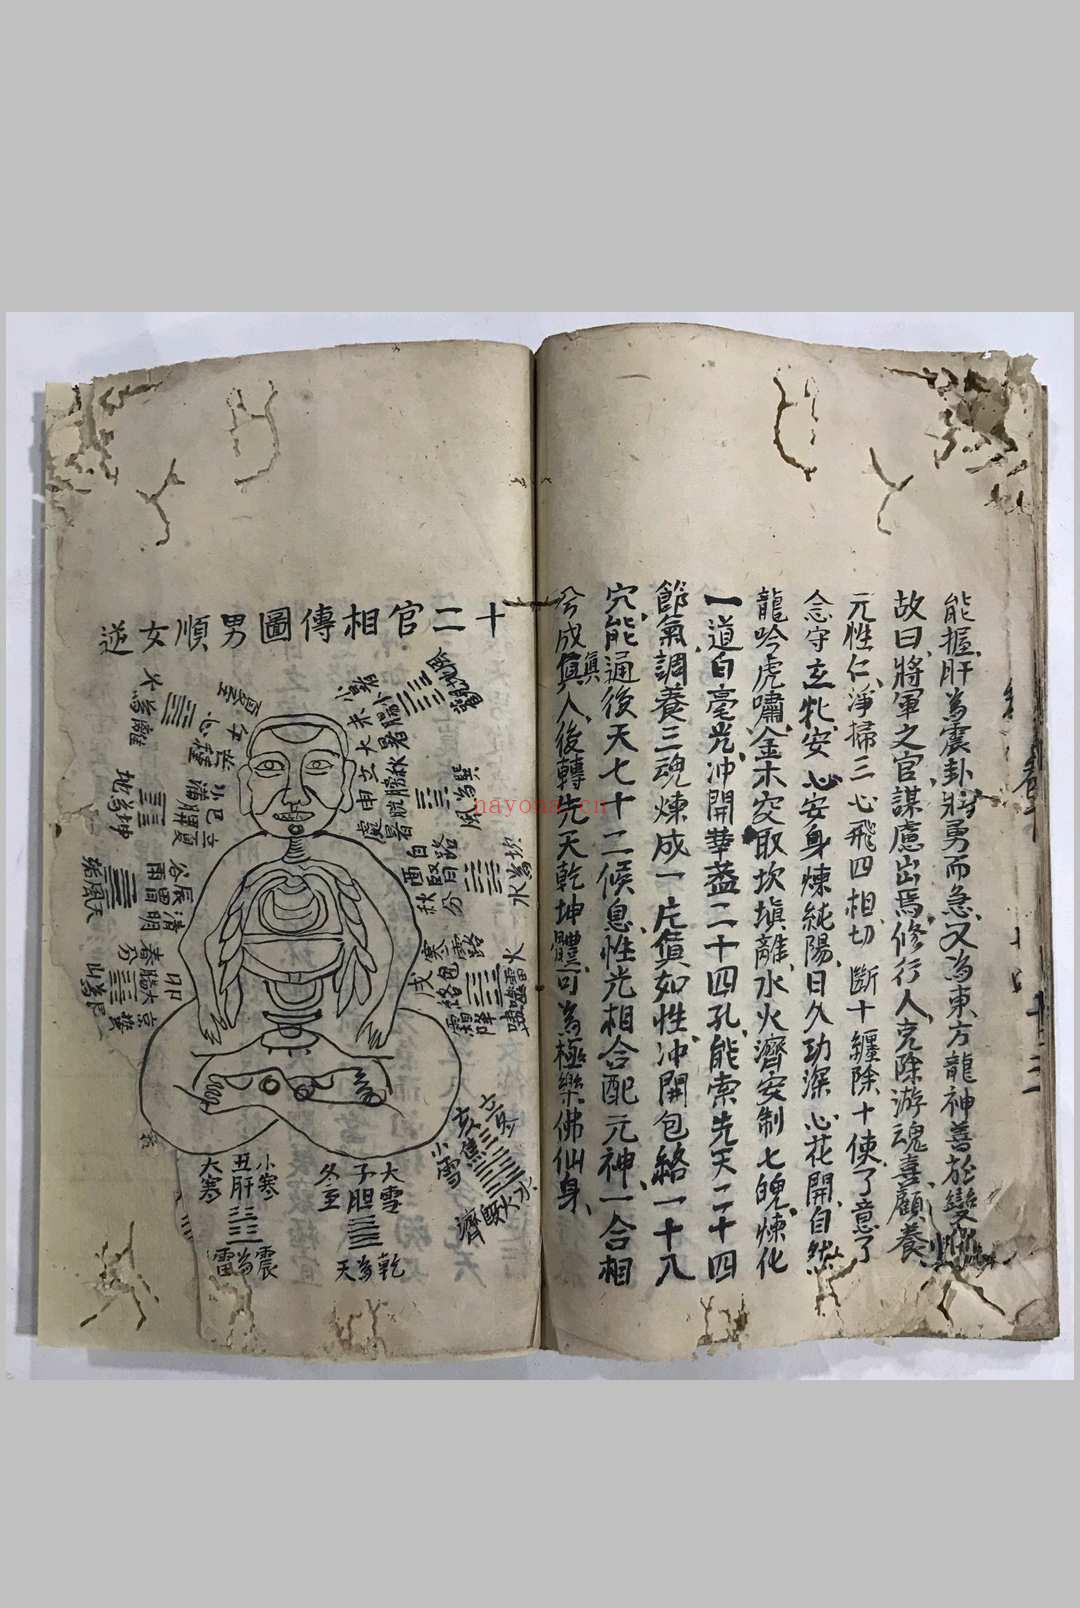 能握肝為震卦將勇而急又為東方龍神善於變
故曰將軍之官謀慮出焉修行人克除游魂喜顧養
元性仁淨掃三心飛四相切斷十纏除十使了意了
念守玄牝安心安身煉純陽日久功深心花開自然
龍吟虎嘯金木交取坎填離水火濟安制七魄煉化
一道白毫光冲開華蓋二十四孔能索先天二十四
節氣調養三魂煉成一片真如性冲開包絡一十八
穴能通後天七十二候息性光相合配元神一合相
兮成真人後轉先天乾坤體可為極樂佛仙身
真
十二官相傳圖男順女逆
小暑
未小腸
大暑
立秋
申膀胱
處暑
巽為風
白露
酉腎
秋分
坎為水
寒露
戌包絡
霜降
火雷噬嗑
立冬
亥三焦
小雪
水火既濟
大雪
子胆
冬至
乾為天
小寒
丑肝
大寒
震為雷
卯大腸
春分
艮為山
清明
辰胃
谷雨
立夏
巳脾
小滿
坤為地
芒種
午心
夏至
離為火
nayona.cn